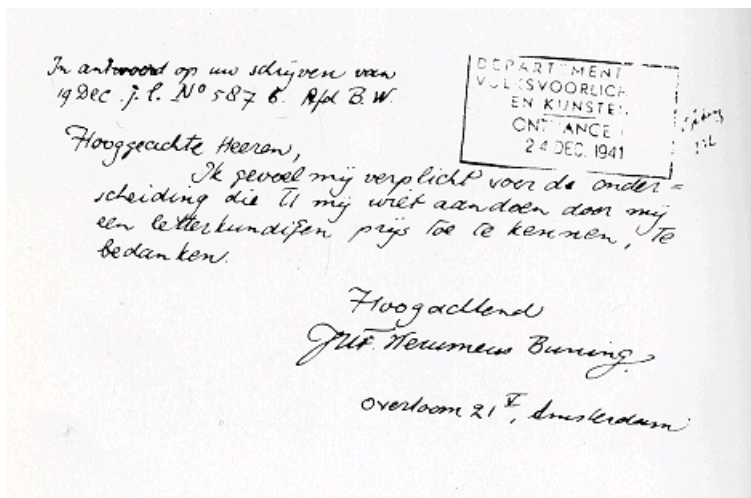 In antwoord op uw schrijven van
19 Dec. j.l. No 587 b. Afd B.W.
DEPARTEMENT
VOLKSVOORLICH
EN KUNSTEN
ONTVANGEN
24 DEC. 1941
Hooggeachte Heeren,
Ik gevoel mij verplicht voor de onder=
scheiding die U mij wilt aandoen door mij
een letterkundigen prijs toe te kennen, te
bedanken.
Hoogachtend
JWF. Werumeus Buning.
Overtoom 21 V, Amsterdam